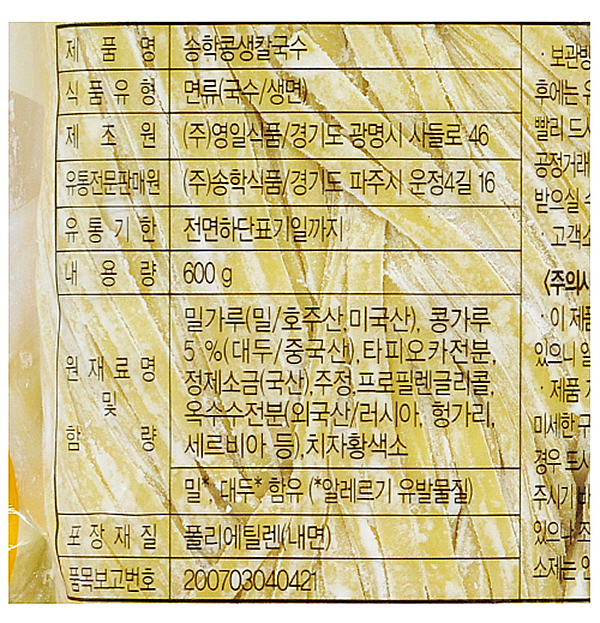 제 품 명 송학콩생칼국수
식 품 유 형 면류(국수/생면)
제 조 원 (주)영일식품/경기도 광명시 사들로 46
유통전문판매원 (주)송학식품/경기도 파주시 운정4길 16
유 통 기 한 전면하단표기일까지
내 용 량 600 g
원 재 료 명
및
함 량
밀가루(밀/호주산,미국산), 콩가루
5 %(대두/중국산),타피오카전분,
정제소금(국산),주정,프로필렌글리콜,
옥수수전분(외국산/러시아, 헝가리,
세르비아 등),치자황색소
밀*, 대두* 함유 (*알레르기 유발물질)
포 장 재 질 폴리에틸렌(내면)
품목보고번호 200703040421
· 보관방
후에는
빨리 도
공정거래
받으실
· 고객
〈주의사
· 이 제품
있으니
· 제품
미세한
경우
주시기
있으니
소재는